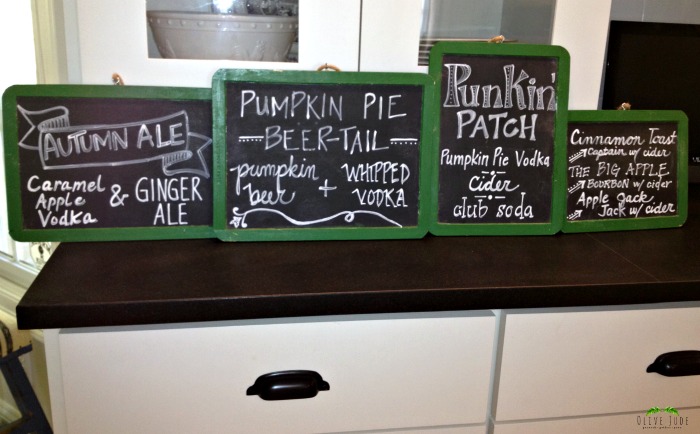 AUTUMN ALE
Caramel
Apple
Vodka
& GINGER
ALE
PUMPKIN PIE
BEER-TAIL
pumpkin
beer
+ WHIPPED
VODKA
PunKin'
PATCH
Pumpkin Pie Vodka
cider
club soda
Cinnamon Toast
Captain w/ cider
THE BIG APPLE
BOURBON w/ cider
Apple Jack
Jack w/ cider
OLIVE JUDE